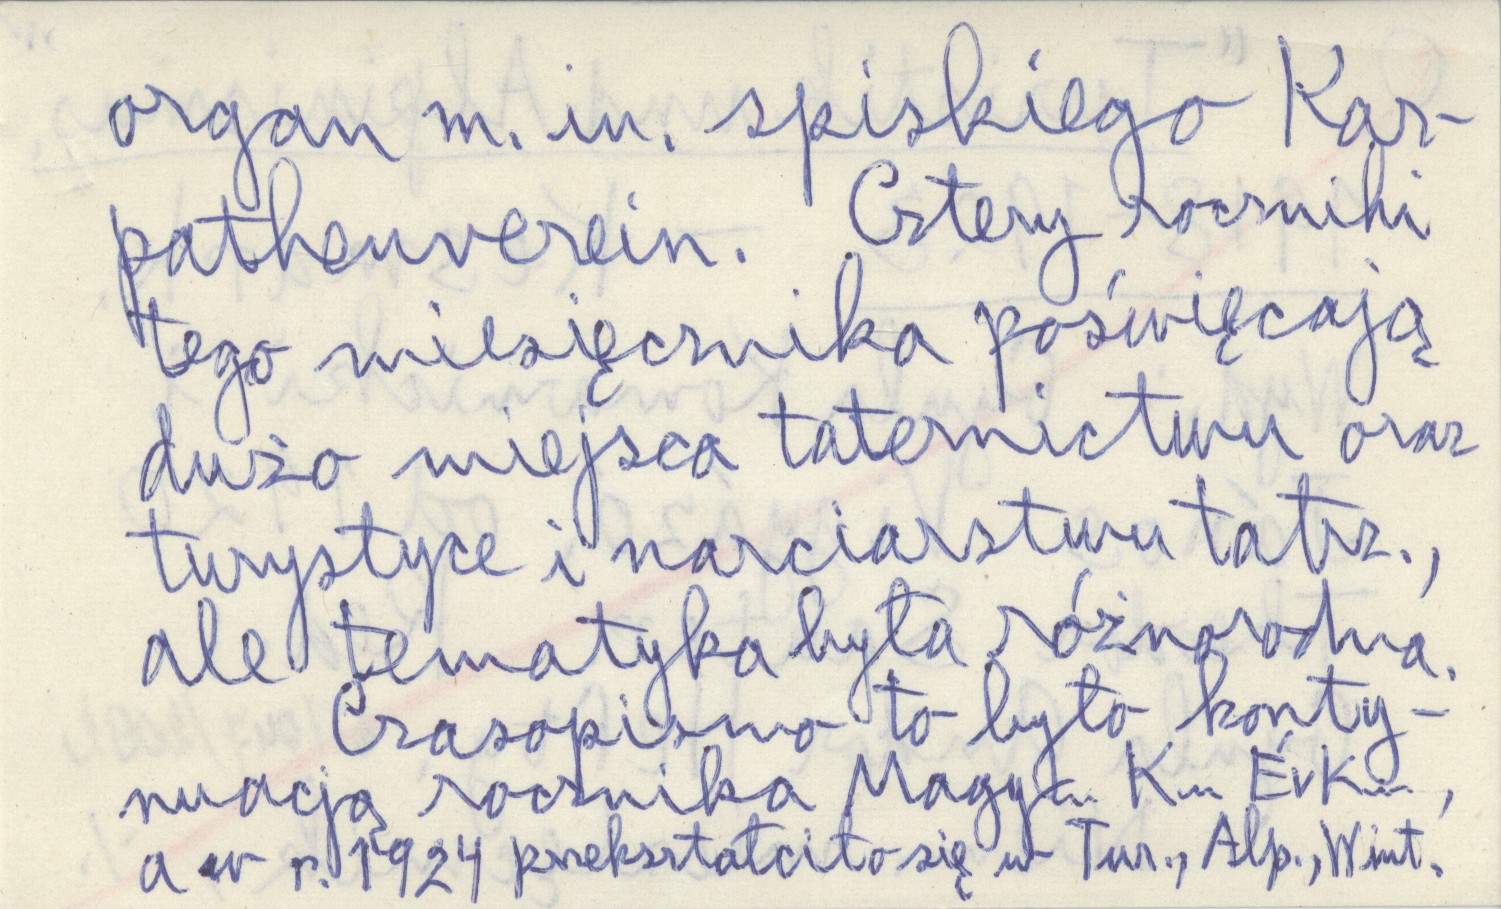 organ m. in. spiskiego Kar-
pathenverein. Cztery roczniki
tego miesięcznika poświęcają
dużo miejsca taternictwu oraz
turystyce i narciarstwu tatrz.,
ale tematyka była różnorodna.
Czasopismo to było konty-
nuacją rocznika Magy... K... ÉvK...,
a w r. 1924 przekształciło się w Tur., Alp., Wint.